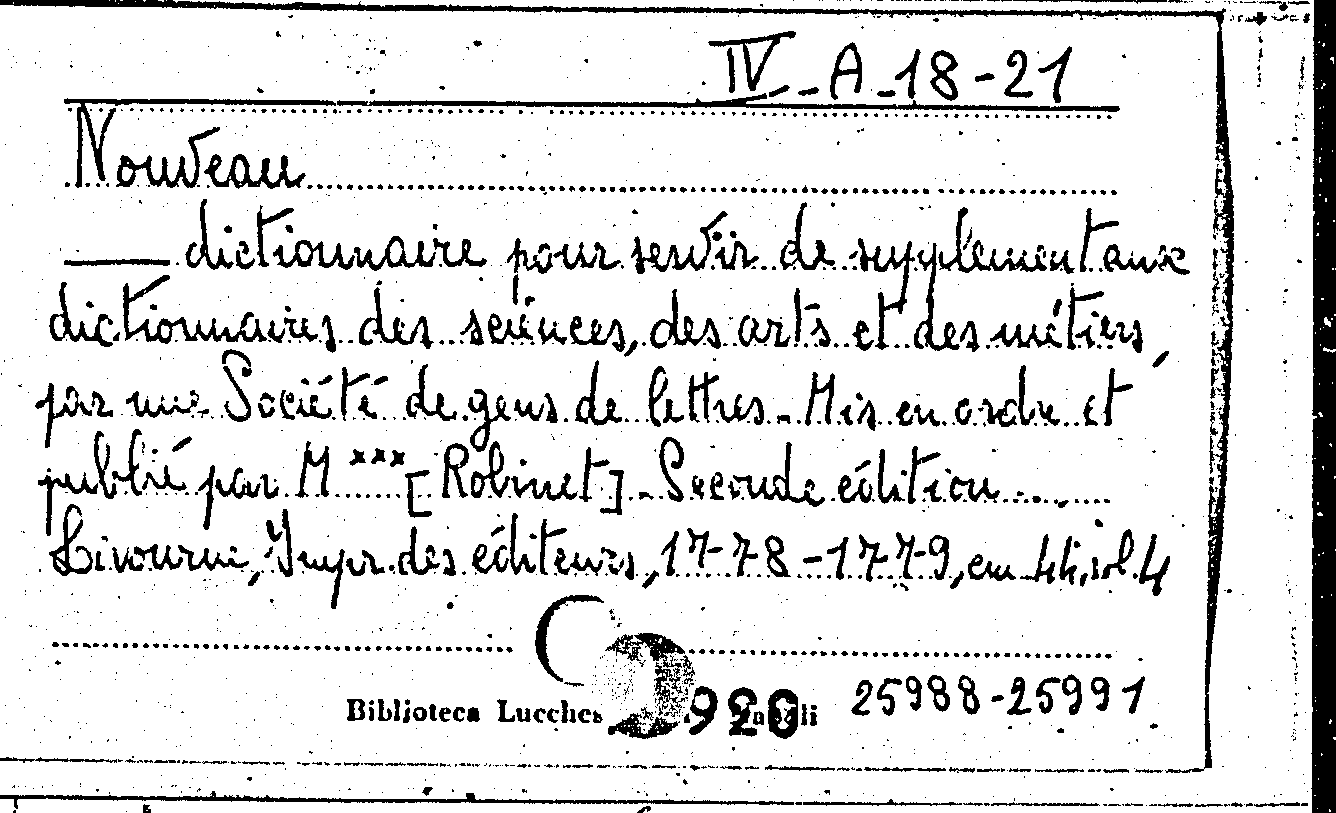 IV-A-18-21
Nouveau
dictionnaire pour servir de supplement aux
dictionnaires des sciences, des arts et des métiers,
par une Société de gens de lettres. Mis en ordre et
publié par M*** [Robinet]. Seconde édition
Livourne, Impr. des éditeurs, 1778-1779, cm 44, vol. 4
Biblioteca Lucches
920
25988-25991